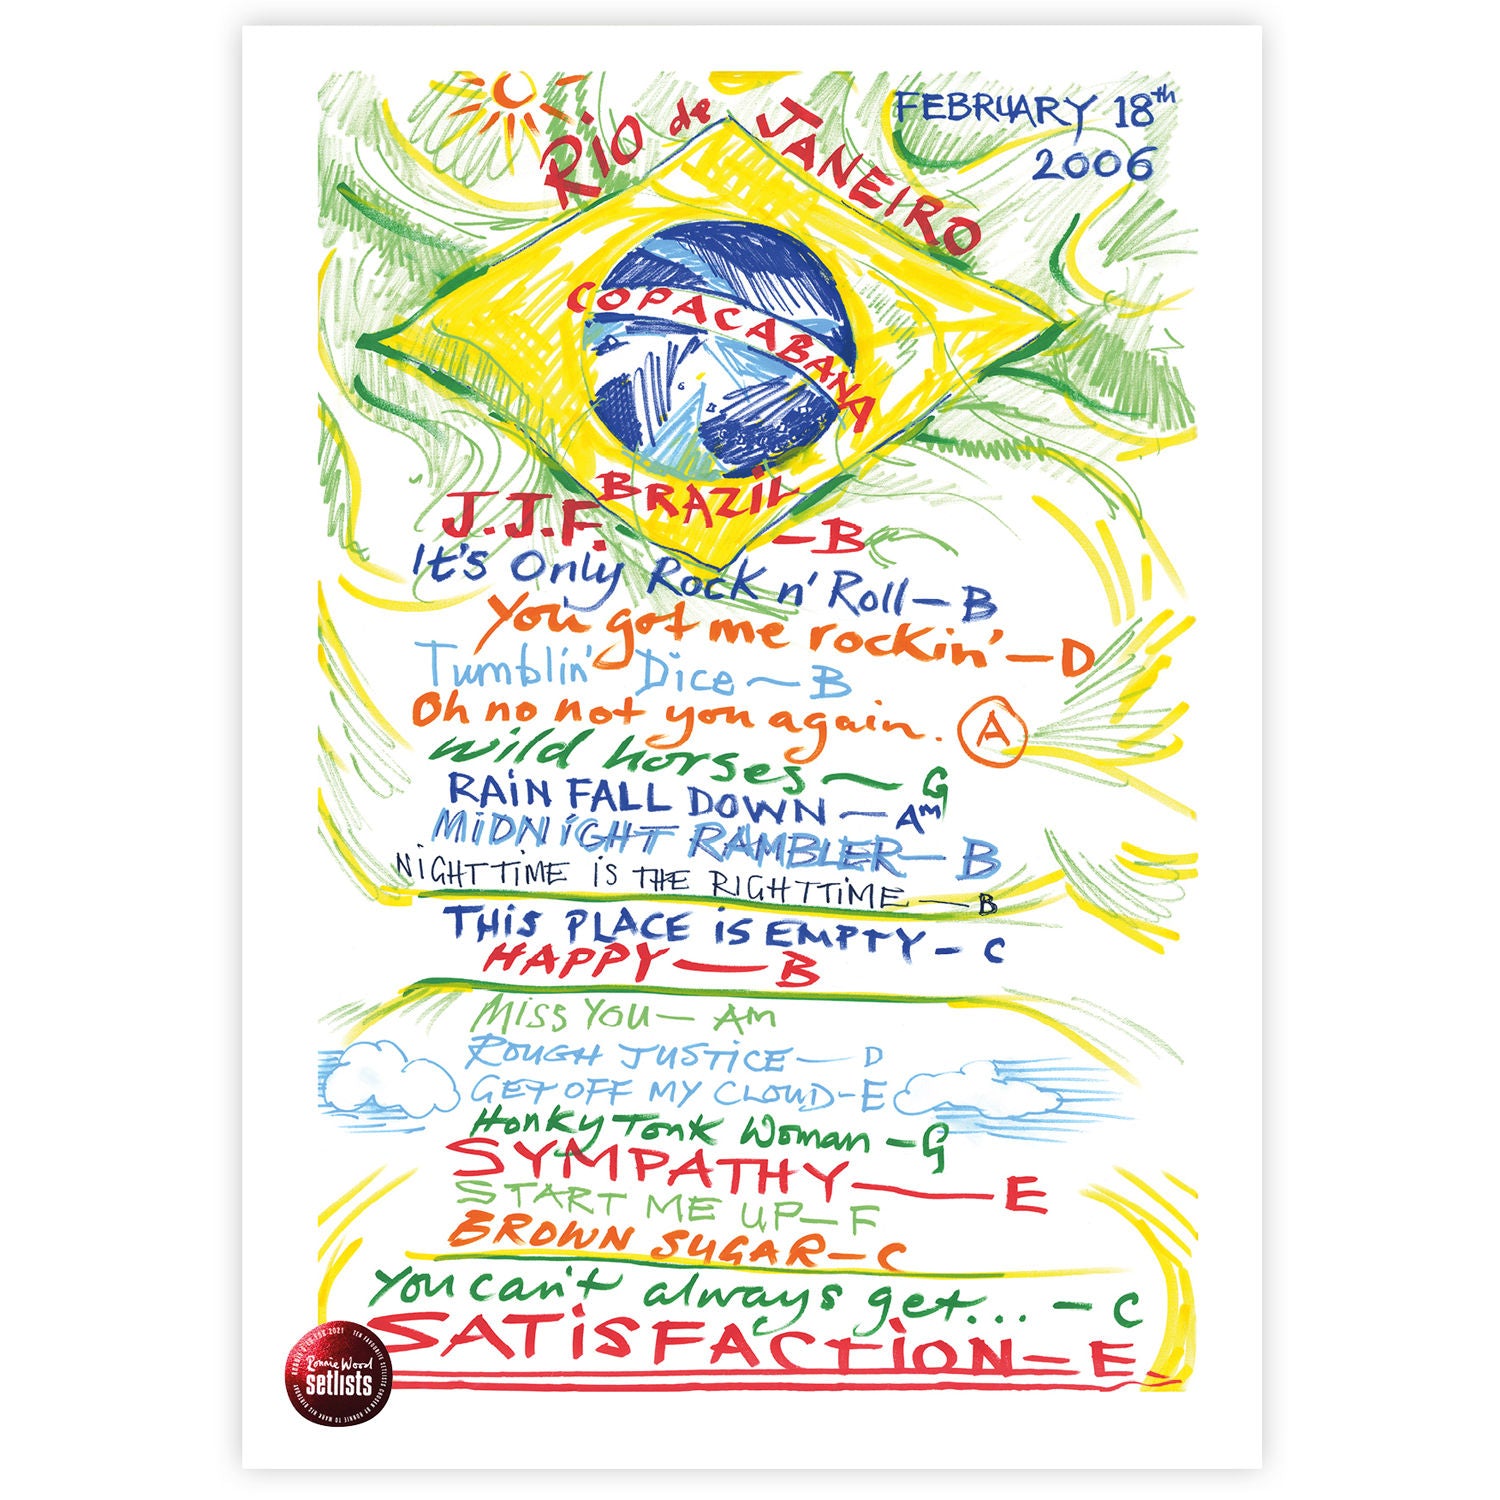 FEBRUARY 18th
2006
Rio de JANEIRO
COPACABANA
BRAZIL
J.J.F. – B
It's Only Rock n' Roll – B
You got me rockin' – D
Tumblin' Dice ~ B
Oh no not you again. A
Wild horses ~ G
RAIN FALL DOWN – Am
MIDNIGHT RAMBLER – B
NIGHTTIME IS THE RIGHTTIME – B
THIS PLACE IS EMPTY – C
HAPPY – B
MISS YOU – AM
ROUGH JUSTICE – D
GET OFF MY CLOUD – E
Honky Tonk Woman – G
SYMPATHY – E
START ME UP – F
BROWN SUGAR – C
You can't always get... – C
SATISFACTION – E
Ronnie Wood
setlists